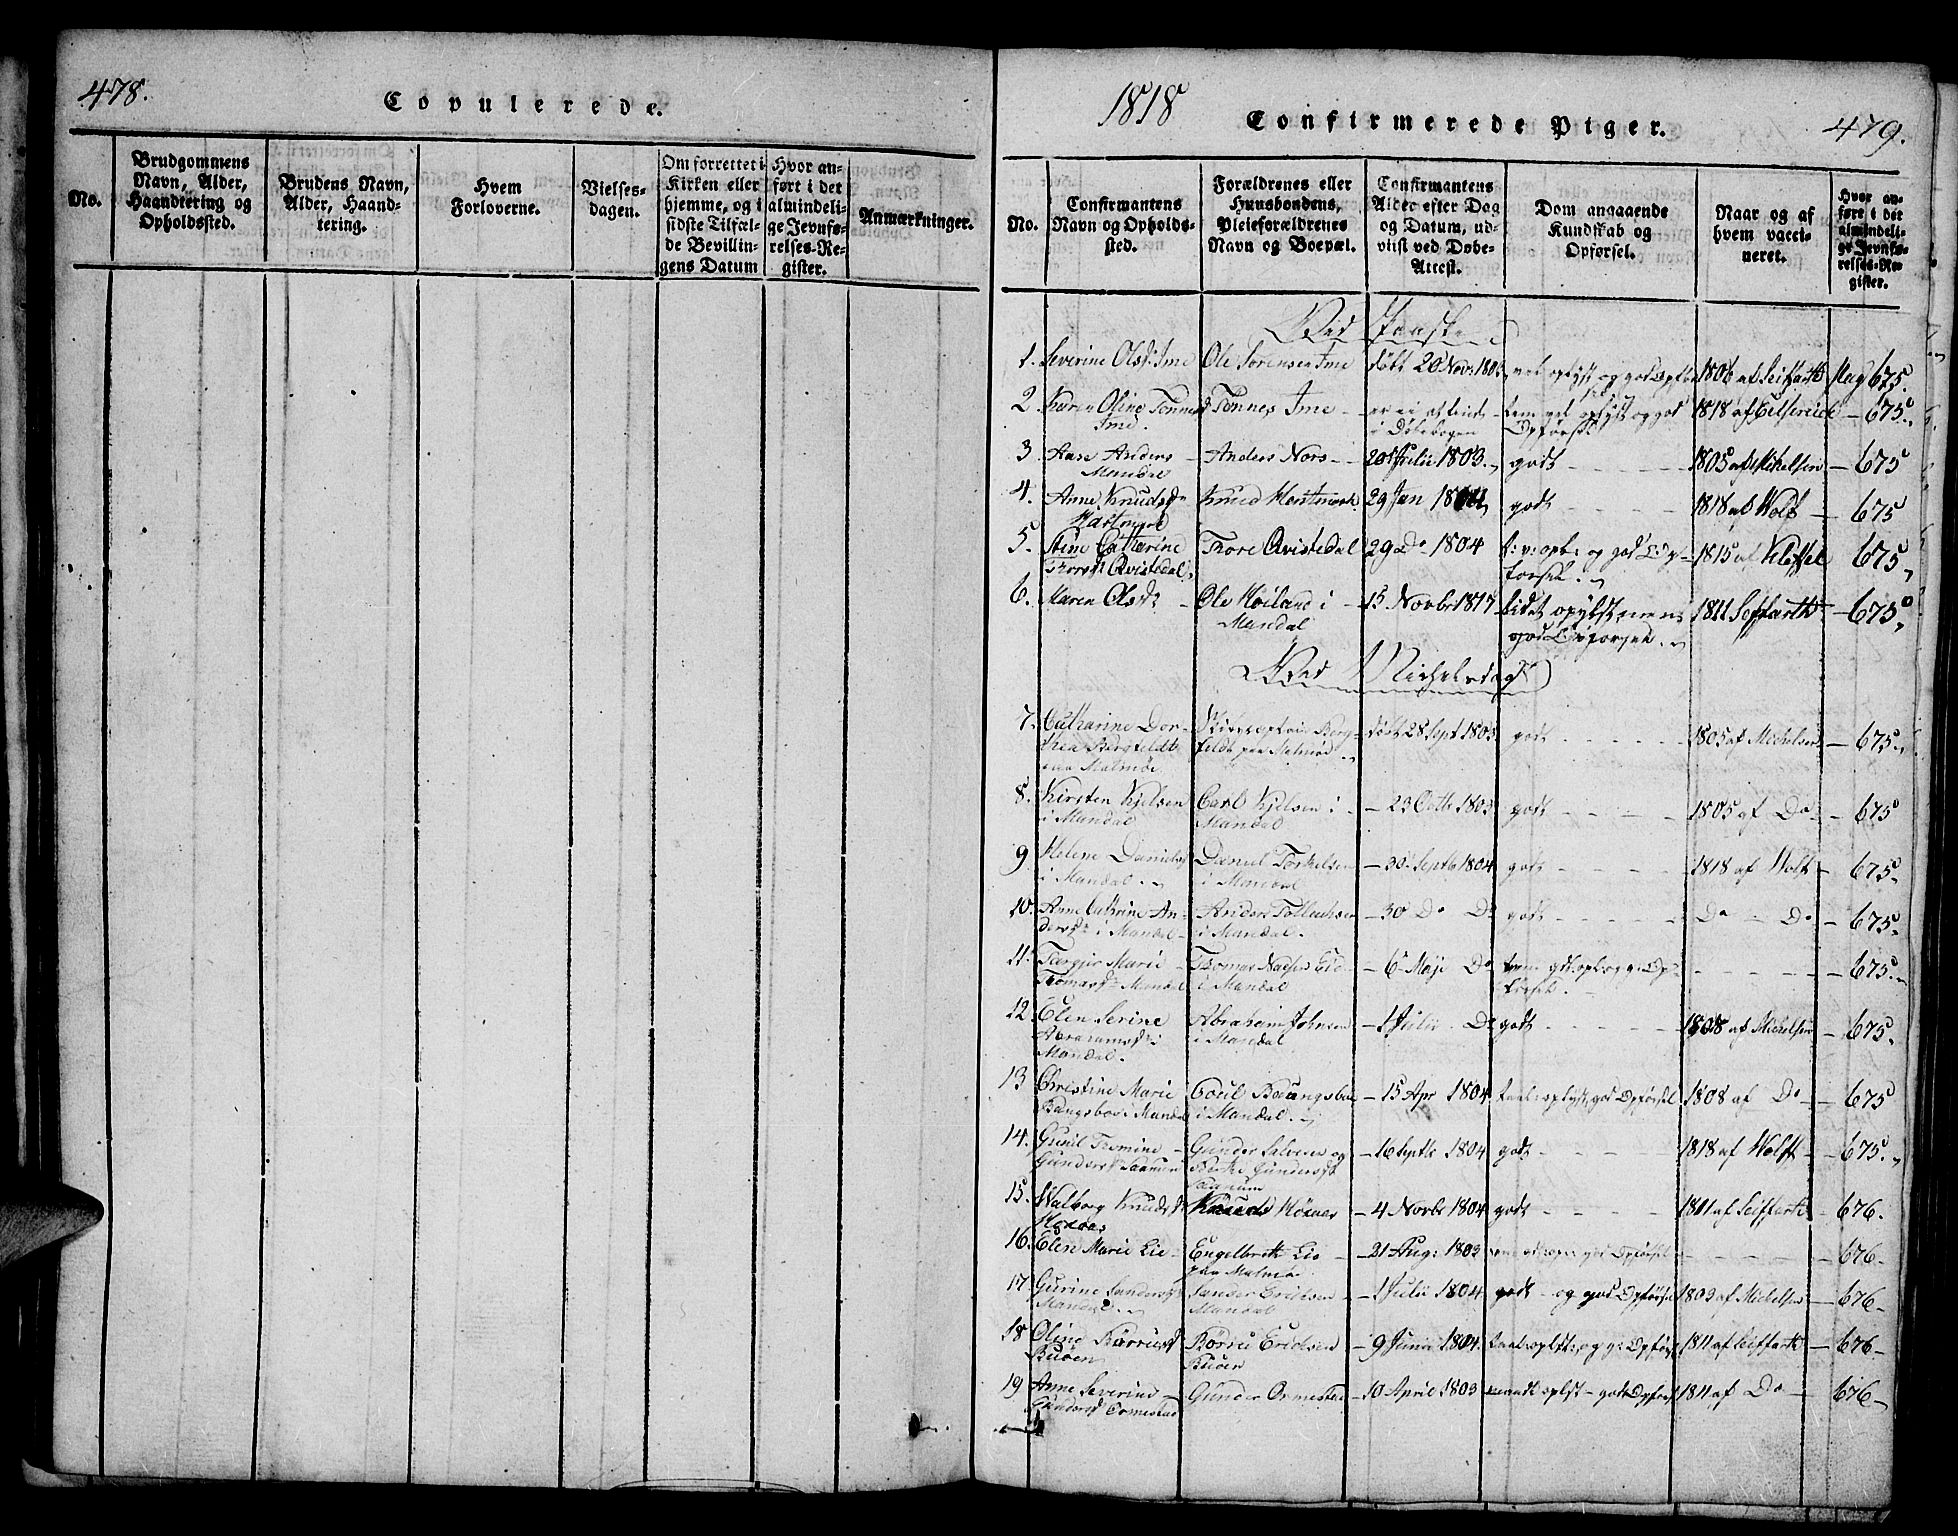 478.
Copulerede.
No.
Brudgommens Navn, Alder, Haandtering og Opholdssted.
Brudens Navn, Alder, Haandtering.
Hvem Forloverne.
Vielsesdagen.
Om forrettet i Kirken eller hjemme, og i sidste Tilfælde Bevillingens Datum
Hvor anført i det almindelige Jevnførelses-Register.
Anmærkninger.
1818
Confirmerede Piger.
479.
No.
Confirmantens Navn og Opholdssted.
Forældrenes eller Huusbondens, Pleieforældrenes Navn og Boepæl.
Confirmantens Alder efter Dag og Datum, udviist ved Døbe-Attest.
Dom angaaende Kundskab og Opførsel.
Naar og af hvem vaccineret.
Hvor anført i det almindelige Jevnførelses-Register.
Ved Paaske
1. Severine Olsd: Ime Ole Sørensen Ime født 20 Novr 1803 vel oplyst og god Opfør 1806 af Seiffarth Pag 675.
2 Karen Oline Tønnesd Ime. Tønnes Ime er ei at finde i Døbebogen tem vel oplyst og god Opførsel 1818 af - 675.
3 Aase Anders Mandal Anders Nors 20 Julii 1803. godt 1805 af Mikelsen - 675
4. Anne Knudsd Hartmark Knud Hartmark 29 Jan godt 1818 af Wolf - 675
5. Stine Catharine Thoresd: Qvistedal Thore Qvistedal 29 Do 1804 t: v: opl: og god Opførsel. 1815 af Kløffel 675.
6. Maren Olsdr Ole Høiland i Mandal 15 Novbr 1817 lidet oplyst, men god Opførsel. 1811 Seffarth - 675.
Ved Michelsdag
7. Catharine Dorthea Bergfeldt paa Malmøe Bergfeldt paa Malmøe født 28 Sept 1803 godt 1805 af Michelsen - 675.
8. Kirsten Kjelsen i Mandal Carl Kjelsen i Mandal - 23 Octb 1803 godt 1805 af Do - 675
9 Helene Danielsd i Mandal. Daniel Torkelsen i Mandal - 30 Septb 1804 godt 1818 af Wolf - 675.
10. Anne Cathrine Andersdr i Mandal Anders Tollachsen i Mandal. - 30 Do Do godt Do - Do - 675.
11. Torgjer Marie Thomasdr Mandal Thomas i Mandal - 6 Maji Do tem: gdt: opl: og g: Opførsel. - 675.
12. Elen Serine Abrahamsdr i Mandal. Abraham Johnsen i Mandal - 1 Julii Do godt 1808 af Michelsen - 675.
13 Christine Marie Bangsboe i Mandal i Mandal. - 15 Apr 1804 taal: oplyst, god Opførsel 1808 af Do - 675
14. Gunil Tomine Gundersd Saanum Gunder Salvesen og Gundersd Saanum - 16 Septb 1804 godt 1818 af Wolff - 675.
15. Walborg Knudsd Knuds - 4 Novbr 1804 godt 1811 af Seiffarth 676.
16. Elen Marie Lie Engelbreth Lie paa Malmøe - 21 Aug: 1803 god Opførsel - 676.
17 Gurine Sandersd Mandal Sander Erichsen Mandal - 1 Julii 1804 godt - og god Opførsel 1803 af Michelsen - 676
18 Oline Børresd Buøen Børre Erichsen Buøen - 9 Junii 1804. taal: oplst: og g: Opførs 1811 af Seiffarth - 676.
19 Anne Severine Gundersd Ormestad Gunder Ormestad - 10 April 1803 maadl oplst - god Opførsel 1811 af Do - 676